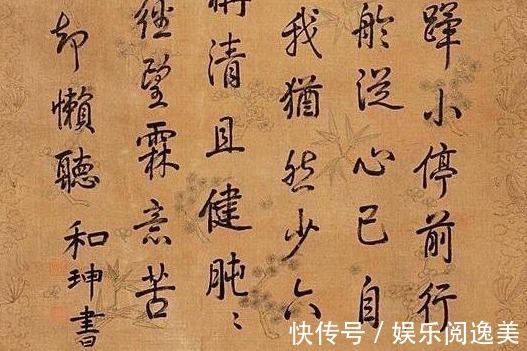 蹕小停前行
於從心已自
我猶然少六
清且健肫〻
經望霖意苦
却懶聽
和珅書
快传号 / 娱乐阅逸美